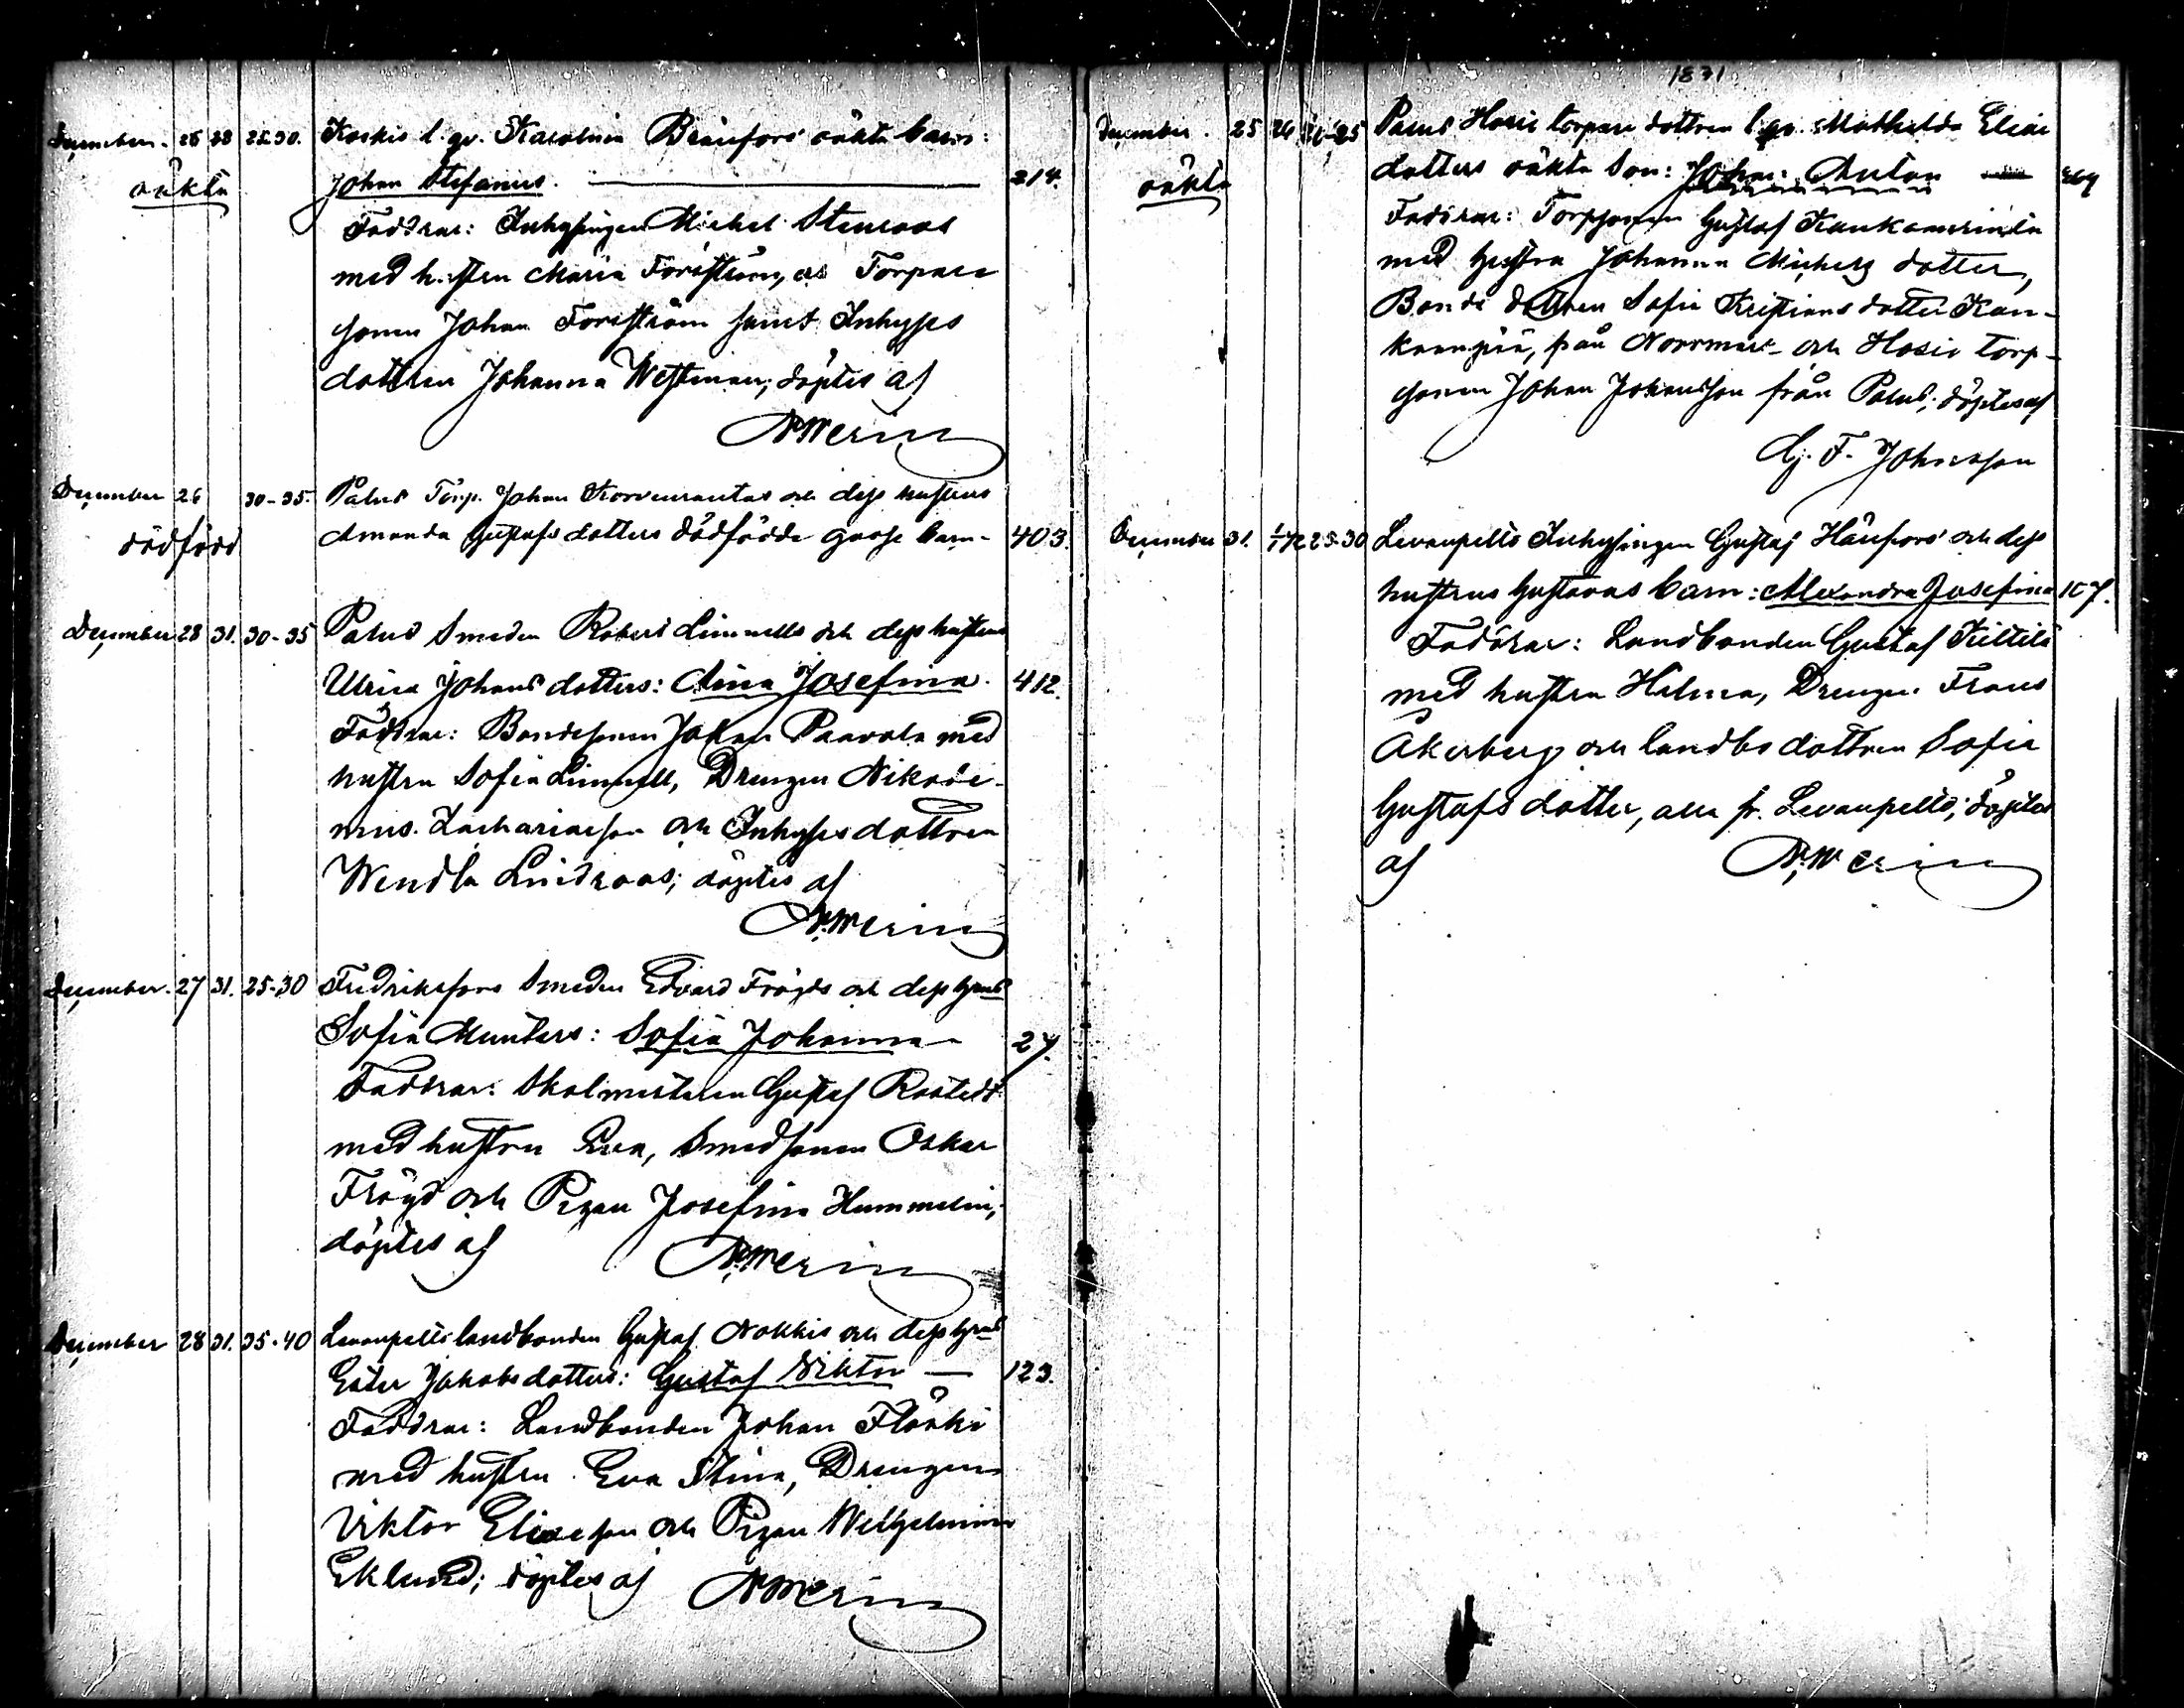 December. 26 28 25-30. Koskis l. qv. Karolina Bränfors oäkta barn:
oäkta Johan Stefanus. 214.
Faddrar: Inhysingen Michel Stenroos
med hustru Maria Forsström, och Torpare
sonen Johan Forsström samt Inhyses
dottren Johanna Westman; döptes af
N. Merin
December 26 30-35. Påmark Torp. Johan Korvenrantas och dess hustrus
dödfödd Amanda Gustafs dotters dödfödde gosse barn- 403.
December 28 31. 30-35 Smeden Robert Linnells och dess hustrus
Ulrica Johans dotters: Aina Josefina. 412.
Faddrar: Bondesonen Johan Paavola med
hustru Sofia Linnell, Drengen Nikode-
mus. Zachariasson och Inhyses dottren
Wendla Lindroos; döptes af
N. Merin
December. 27 31. 25-30 Fredriksfors Smeden Edvard Fröjds och dess hus
Sofia Munters: Sofia Johanna 27.
Faddrar: Skolmästaren Gustaf Rostedt
med hustru Eva, Smedsonen Oskar
Fröjd och Pigan Josefina Hummelin;
döptes af N. Merin
December 28 31. 35-40 Levanpelto landbonden Gustaf Nokkis och dess hus
Ester Jakobs dotters: Gustaf Viktor — 123.
Faddrar: Landbonden Johan Flörki
med hustru Eva Stina, Drengen
Viktor Eliasson och Pigan Wilhelmina
Eklund; döptes af N. Merin
1871
December. 25 26 torpare dottren l. qv. Mathilda Elias
oäkta dotters oäkta Son: Johan Anton
Faddrar: Torpsonen Gustaf Kankaanrinta
med hustru Johanna Michels dotter,
Bonde dottren Sofia Kristians dotter Kan-
kaanpää, från Norrmark och Hosio torp-
sonen Johan Johansson från; döptes af
G. F. Johnsson
December 31. 1/1 72 25-30 Levanpelto Inhysingen Gustaf Hänfors och dess
hustrus Gustavas barn: Alexandra Josefina 107.
Faddrar: Landbonden Gustaf Kittilä
med hustru Helena, Drengen Frans
Åkerberg och landbo dottren Sofia
Gustafs dotter, alla fr. Levanpelto; döptes
af N. Merin